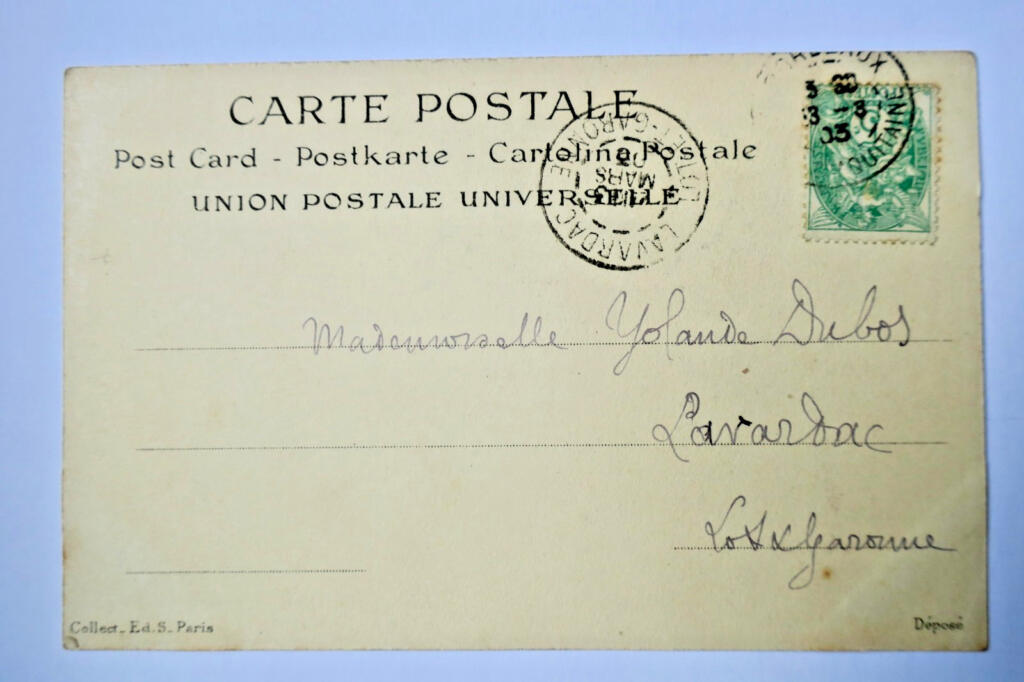 CARTE POSTALE
Post Card - Postkarte - Cartolina Postale
UNION POSTALE UNIVERSELLE
LAVARDAC
LOT-ET-GARONNE
MARS
03
BORDEAUX
03
Mademoiselle Yolande Dubos
Lavardac
Lot & Garonne
Collect. Ed. S. Paris
Déposé